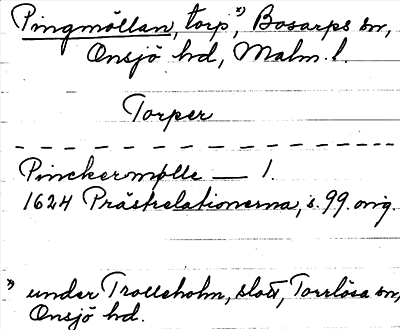 Pingmöllan, torp *), Bosarps sn,
Onsjö hd, Malm. l.
Torper
Pinckermølle — 1.
1624 Prästrelationerna, s. 99. orig.
*) under Trolleholm, slott, Torrlösa sn,
Onsjö hd.